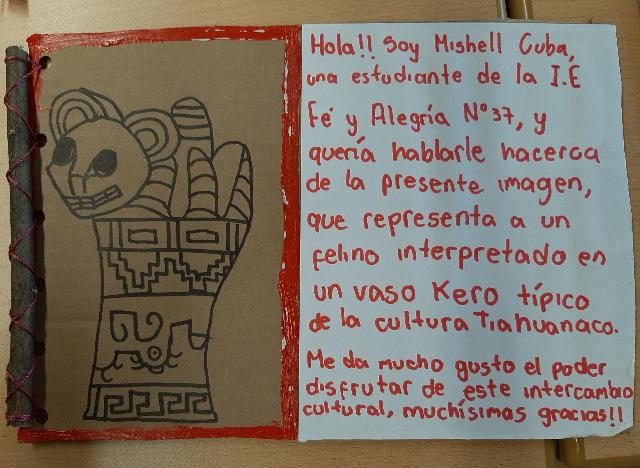 Hola!! Soy Mishell Cuba,
una estudiante de la I.E
Fé y Alegría N° 37, y
quería hablarle hacerca
de la presente imagen,
que representa a un
felino interpretado en
un vaso Kero típico
de la cultura Tiahuanaco.
Me da mucho gusto el poder
disfrutar de este intercambio
cultural, muchísimas gracias!!